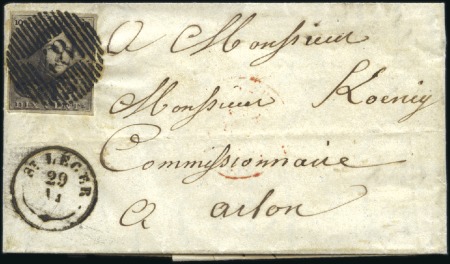 DIX CENT.
A Monsieur
Monsieur Koenig
Commissionnaire
A arlon
ST LÉGER.
29